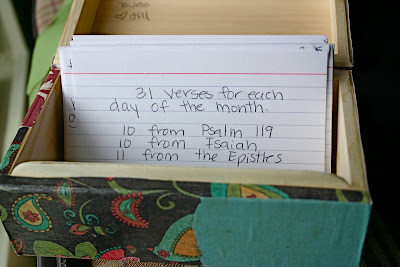 31 verses for each
day of the month.
10 from Psalm 119
10 from Isaiah
11 from the Epistles